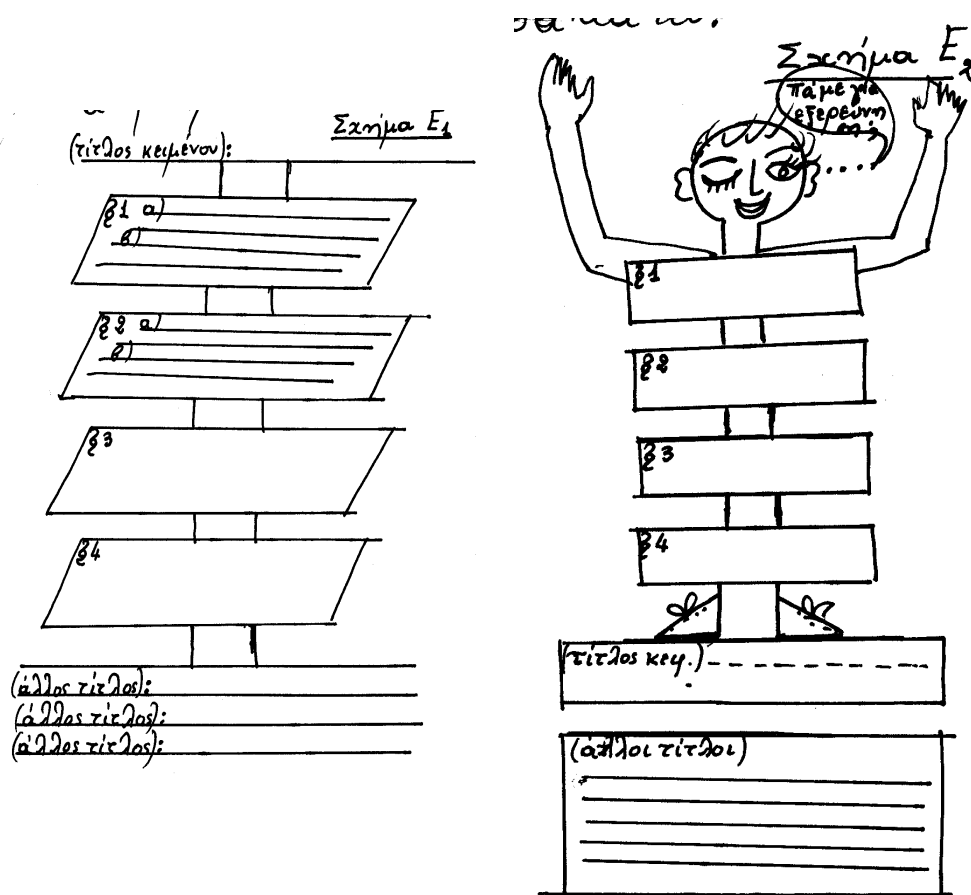 Σχήμα Ε1
(τίτλος κειμένου):
§1 α)
β)
§2 α)
β)
§3
§4
(άλλος τίτλος):
(άλλος τίτλος):
(άλλος τίτλος):
Σχήμα Ε2
πάμε για
εξερεύνη
§1
§2
§3
§4
(τίτλος κειμ.)
(άλλοι τίτλοι)